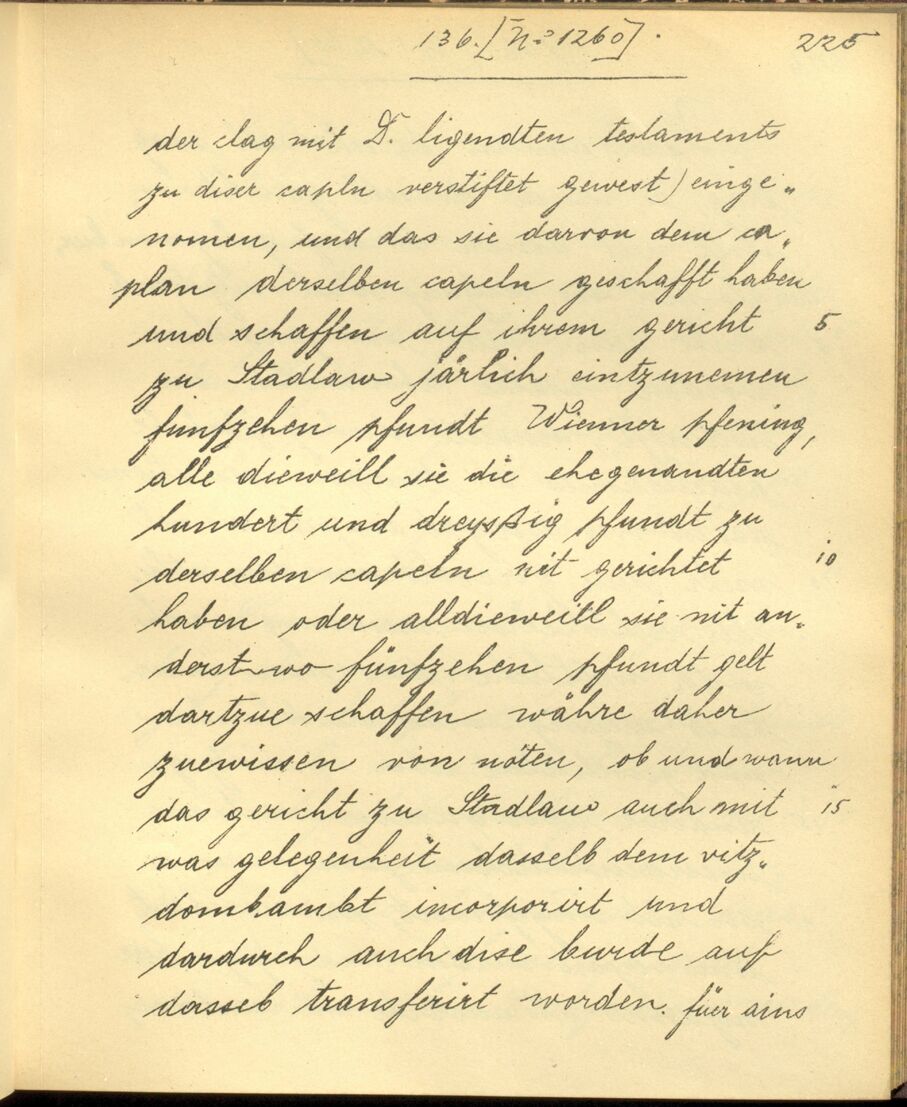 136. [No 1260]. 225
der clag mit D. ligendten testaments
zu diser capln verstiftet gewest) einge„
nomen, und das sie darvon dem ca„
plan derselben capeln geschafft haben
und schaffen auf ihrem gericht 5
zu Stadlaw järlich eintzunemen
funfzehen pfundt Wienner pfening,
alle dieweill sie die ehegenandten
hundert und dreyssig pfundt zu
derselben capeln nit gerichtet 10
haben oder alldieweill sie nit an„
derst wo fünfzehen pfundt gelt
dartzue schaffen währe daher
zuewissen von nöten, ob und wann
das gericht zu Stadlaw auch mit 15
was gelegenheit dasselb dem vitz„
dombambt incorporirt und
dardurch auch dise burde auf
dasseb transferirt worden. füer ains